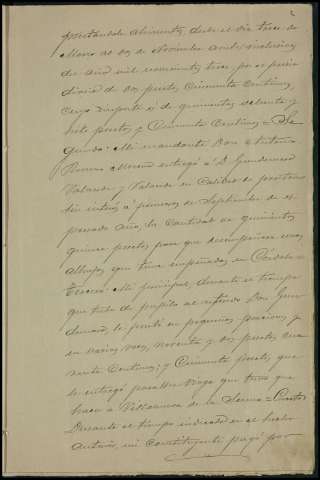 prestándole alimentos, desde el dia trece de
Marzo al dos de Noviembre ambos inclusives
del año mil novecientos trece, por el precio
diario de dos pesetas cincuenta centimos,
cuyo importe es de quinientas ochenta y
siete pesetas y cincuenta centimos = Se
gundo: Mi mandante Don Antonio
Romero Moreno entregó á D. Gumersindo
Valverde y Valverde en calidad de prestamo
sin interes á primeros de Septiembre de es
presado año, la cantidad de quinientas
quince pesetas para que desempeñara unas
alhajas que tenia empeñadas en Córdoba =
Tercero: Mi principal, durante el tiempo
que tubo de pupilo al referido Don Gumer
sindo, le prestó en pequeñas porciones y
en varias veces, noventa y dos pesetas cua
renta centimos; y cincuenta pesetas que
le entregó para un viage que tuvo que
hacer á Villanueva de la Serena = Cuarto
Durante el tiempo indicado en el hecho
anterior, mi constituyente pagó por